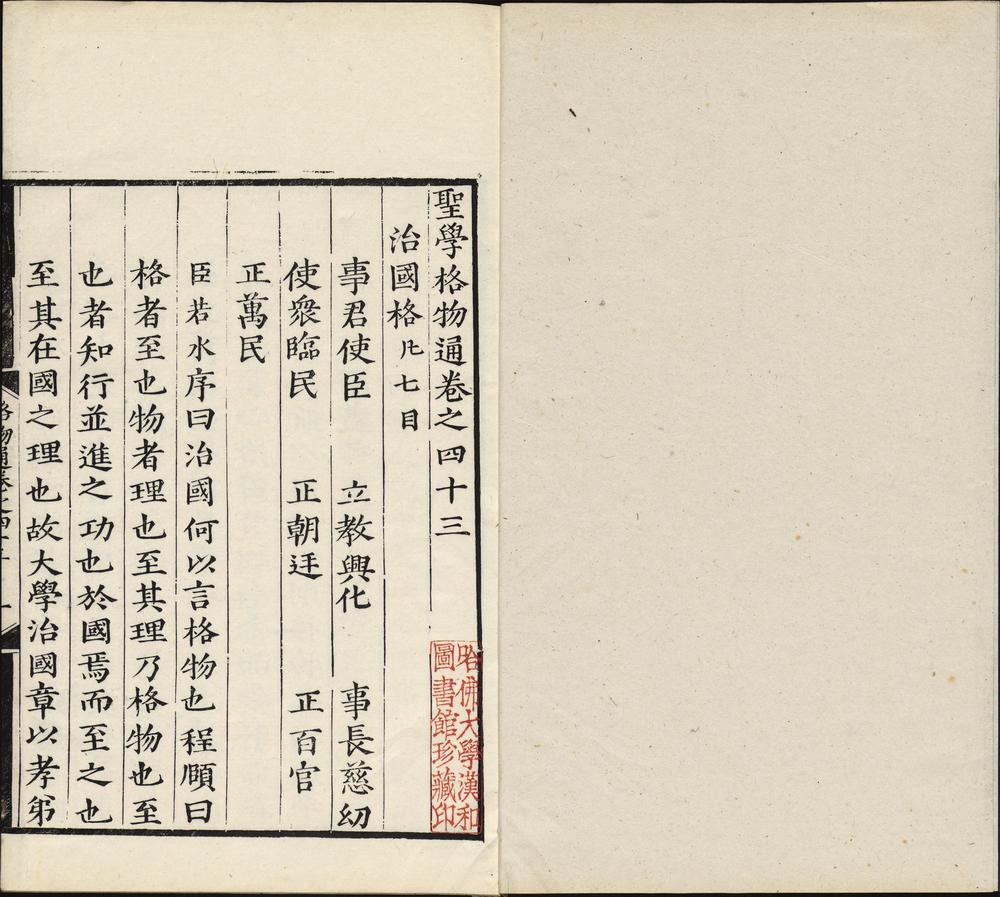 聖學格物通卷之四十三
治國格凡七目
事君使臣 立教興化 事長慈幼
使衆臨民 正朝廷 正百官
正萬民
臣若水序曰治國何以言格物也程頤曰
格者至也物者理也至其理乃格物也至
也者知行並進之功也於國焉而至之也
至其在國之理也故大學治國章以孝弟
哈佛大學漢和
圖書館珍藏印